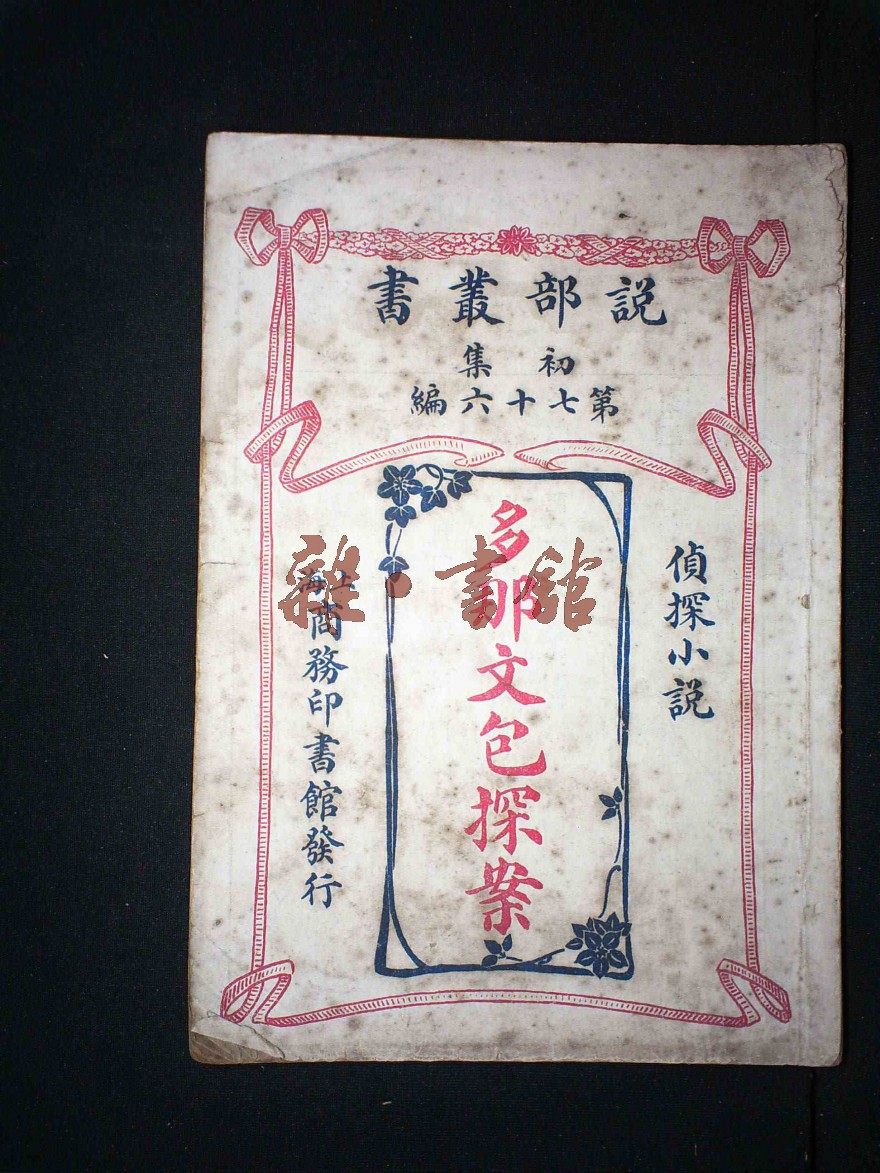 説部叢書
初集
第七十六編
偵探小説
多那文包探案
上海商務印書館發行
雜·書館